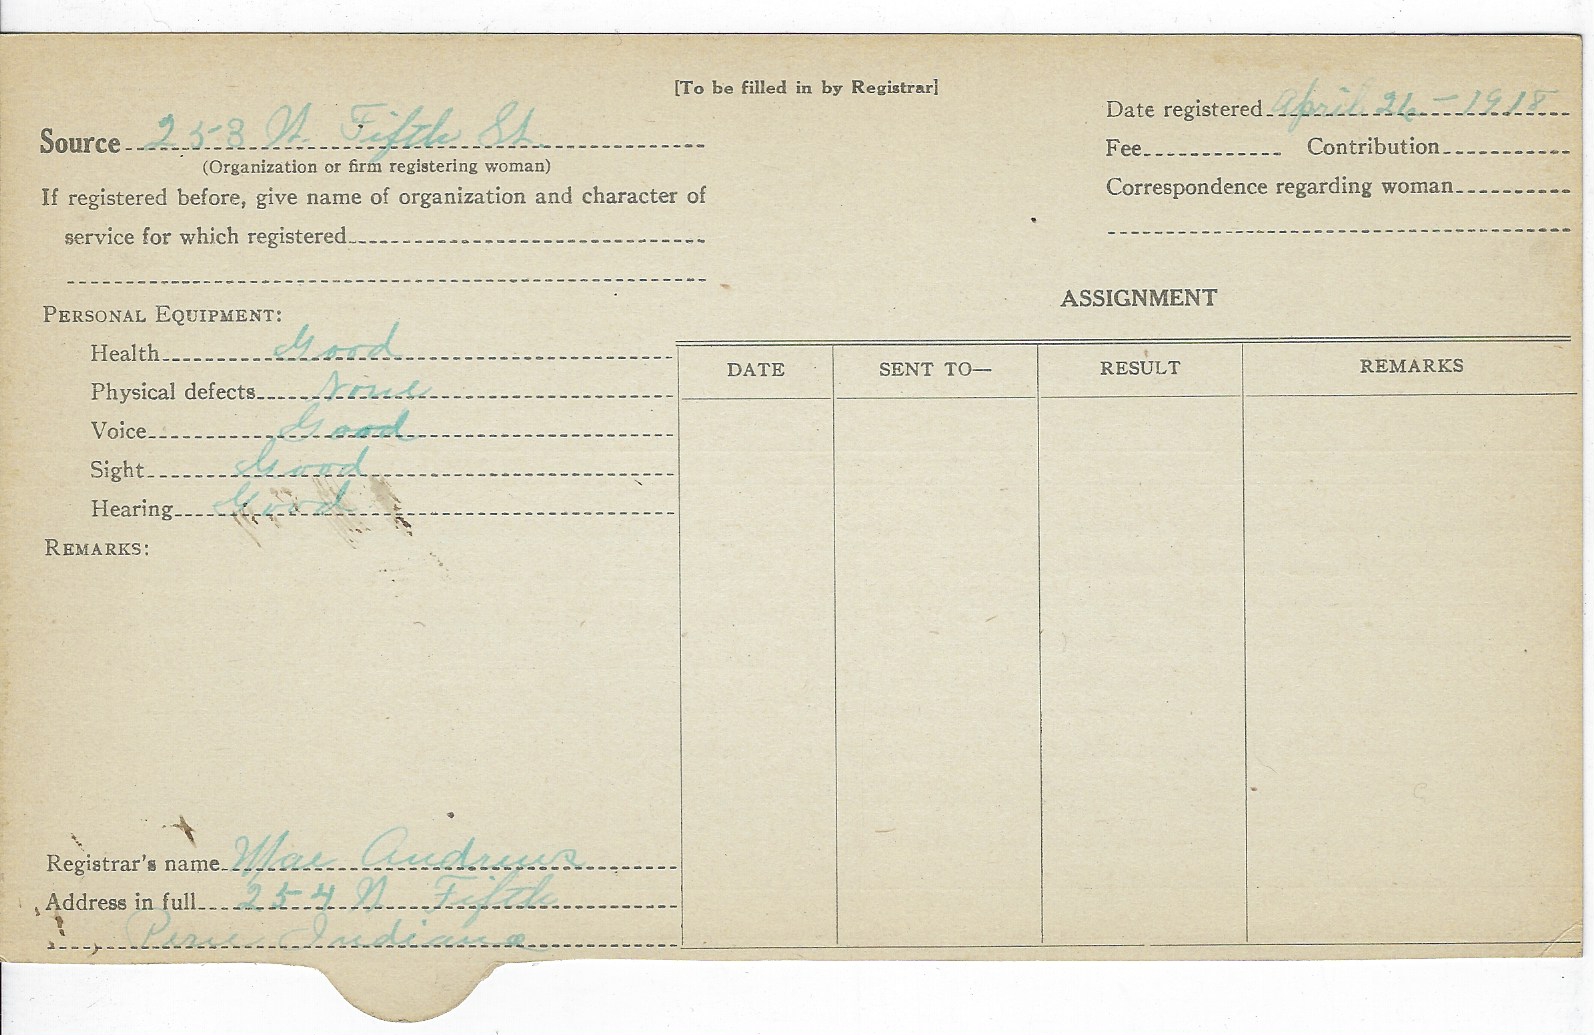 [To be filled in by Registrar]
Source 253 N. Fifth St.
(Organization or firm registering woman)
If registered before, give name of organization and character of
service for which registered
Date registered April 26 - 1918
Fee Contribution
Correspondence regarding woman
PERSONAL EQUIPMENT:
Health Good
Physical defects None
Voice Good
Sight Good
Hearing Good
REMARKS:
ASSIGNMENT
DATE SENT TO— RESULT REMARKS
Registrar's name Mae Andrews
Address in full 254 N Fifth
Peru Indiana